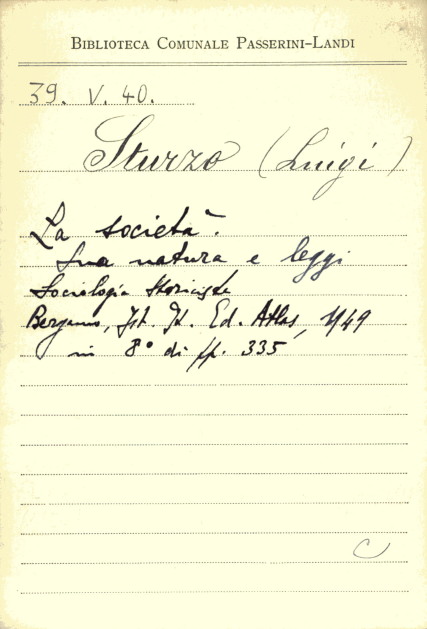 BIBLIOTECA COMUNALE PASSERINI-LANDI
39. V. 40.
Sturzo (Luigi)
La società.
Sua natura e leggi
Sociologia Storicista
Bergamo, Ist. It. Ed. Atlas, 1949
in 8° di pp. 335
C